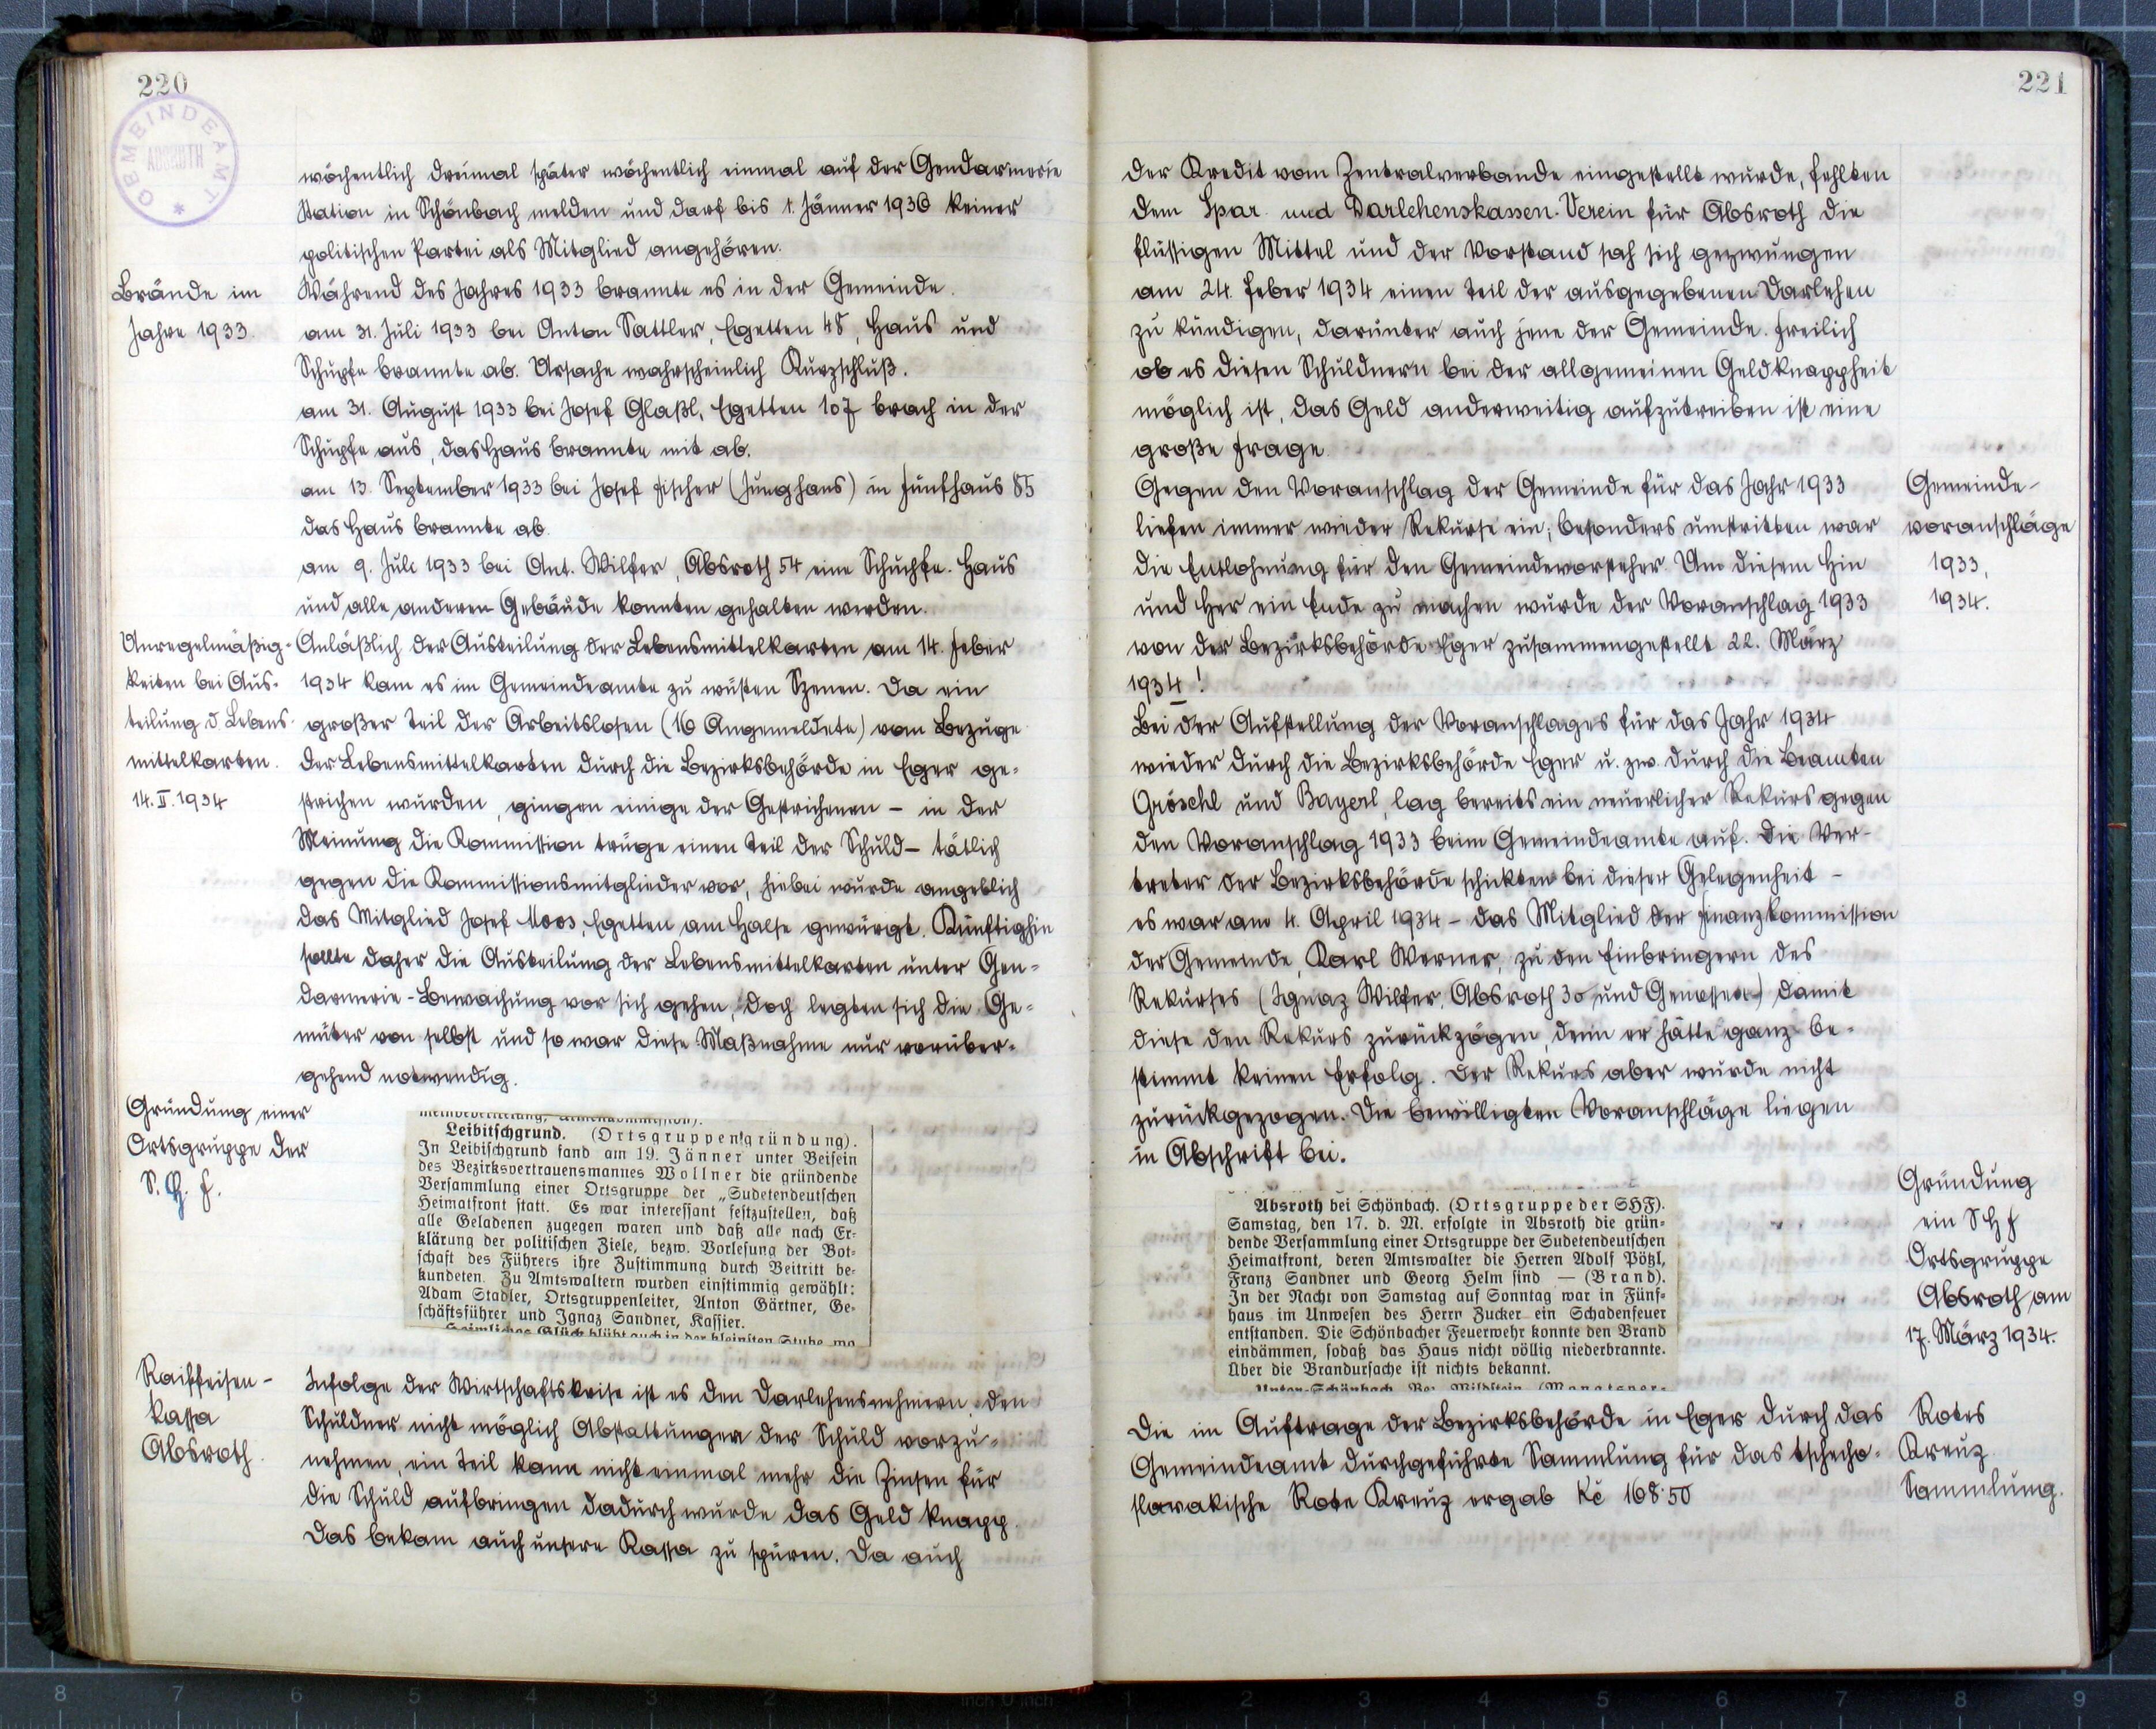 220
GEMEINDEAMT
ABSROTH
wöchentlich dreimal später wöchentlich einmal auf der Gendarmerie
Station in Schönbach melden und darf bis 1. Jänner 1936 keiner
politischen Partei als Mitglied angehören.
Brände im
Jahre 1933.
Während des Jahres 1933 brannte es in der Gemeinde.
am 31. Juli 1933 bei Anton Sattler, Egetten 48, Haus und
Schupfe brannte ab. Ursache wahrscheinlich Kurzschluß.
am 31. August 1933 bei Josef Glaßl, Egetten 107 brach in der
Schupfe aus, das Haus brannte mit ab.
am 13. September 1933 bei Josef Fischer (Junghans) in Fünfhaus 85
das Haus brannte ab.
am 9. Juli 1933 bei Ant. Wilfer, Absroth 54 eine Schupfe. Haus
und alle anderen Gebäude konnten gehalten werden.
Unregelmäßig-
keiten bei Aus-
teilung d Lebens-
mittelkarten.
14. II. 1934
Anläßlich der Austeilung der Lebensmittelkarten am 14. Feber
1934 kam es im Gemeindeamte zu wüsten Szenen. Da ein
großer Teil der Arbeitslosen (16 Angemeldete) vom Bezuge
der Lebensmittelkarten durch die Bezirksbehörde in Eger ge-
strichen wurden, gingen einige der Gestrichenen – in der
Meinung die Kommission trüge einen Teil der Schuld – tätlich
gegen die Kommissionsmitglieder vor, hiebei wurde angeblich
das Mitglied Josef Moos, Egetten am Halse gewürgt. Künftighin
sollte daher die Austeilung der Lebensmittelkarten unter Gen-
darmerie-Bewachung vor sich gehen, doch legten sich die Ge-
müter von selbst und so war diese Maßnahme nur vorüber-
gehend notwendig.
Gründung einer
Ortsgruppe der
S. H. F.
Leibitschgrund. (Ortsgruppengründung).
In Leibitschgrund fand am 19. Jänner unter Beisein
des Bezirksvertrauensmannes Wollner die gründende
Versammlung einer Ortsgruppe der „Sudetendeutschen
Heimatfront statt. Es war interessant festzustellen, daß
alle Geladenen zugegen waren und daß alle nach Er-
klärung der politischen Ziele, bezw. Vorlesung der Bot-
schaft des Führers ihre Zustimmung durch Beitritt be-
kundeten. Zu Amtswaltern wurden einstimmig gewählt:
Adam Stadler, Ortsgruppenleiter, Anton Gärtner, Ge-
schäftsführer und Ignaz Sandner, Kassier.
Heimliches Glück blüht auch in der kleinsten Stube, wo
Raiffeisen-
kassa
Absroth.
Infolge der Wirtschaftskrise ist es den Darlehensnehmern, den
Schuldner nicht möglich Abstattungen der Schuld vorzu-
nehmen, ein Teil kann nicht einmal mehr die Zinsen für
die Schuld aufbringen dadurch wurde das Geld knapp.
Das bekam auch unsere Kassa zu spüren. Da auch
221
der Kredit vom Zentralverbande eingestellt wurde, fehlten
dem Spar- und Darlehenskassen-Verein für Absroth die
flüssigen Mittel und der Vorstand sah sich gezwungen
am 24. Feber 1934 einen Teil der ausgegebenen Darlehen
zu kündigen, darunter auch jene der Gemeinde. Freilich
ob es diesen Schuldnern bei der allgemeinen Geldknappheit
möglich ist, das Geld anderweitig aufzutreiben ist eine
große Frage.
Gegen den Voranschlag der Gemeinde für das Jahr 1933
liefen immer wieder Rekurse ein; besonders umstritten war
die Entlohnung für den Gemeindevorsteher. Um diesem Hin
und Her ein Ende zu machen wurde der Voranschlag 1933
von der Bezirksbehörde Eger zusammengestellt 22. März
1934!
Gemeinde-
voranschläge
1933,
1934.
Bei der Aufstellung der Voranschlages für das Jahr 1934
wieder durch die Bezirksbehörde Eger u. zw. durch die Beamten
Gröschl und Bayerl, lag bereits ein neuerlicher Rekurs gegen
den Voranschlag 1933 beim Gemeindeamte auf. Die Ver-
treter der Bezirksbehörde schickten bei dieser Gelegenheit –
es war am 4. April 1934 – das Mitglied der Finanzkommission
der Gemeinde, Karl Werner, zu den Einbringern des
Rekurses (Ignaz Wilfer, Absroth 30 und Genossen) damit
diese den Rekurs zurückzögen, denn er hätte ganz be-
stimmt keinen Erfolg. Der Rekurs aber wurde nicht
zurückgezogen. Die bewilligten Voranschläge liegen
in Abschrift bei.
Gründung
ein S H F
Ortsgruppe
Absroth am
17. März 1934.
Absroth bei Schönbach. (Ortsgruppe der SHF).
Samstag, den 17. d. M. erfolgte in Absroth die grün-
dende Versammlung einer Ortsgruppe der Sudetendeutschen
Heimatfront, deren Amtswalter die Herren Adolf Pötzl,
Franz Sandner und Georg Helm sind — (Brand).
In der Nacht von Samstag auf Sonntag war in Fünf-
haus im Anwesen des Herrn Zucker ein Schadenfeuer
entstanden. Die Schönbacher Feuerwehr konnte den Brand
eindämmen, sodaß das Haus nicht völlig niederbrannte.
Über die Brandursache ist nichts bekannt.
Die im Auftrage der Bezirksbehörde in Eger durch das
Gemeindeamt durchgeführte Sammlung für das tschecho-
slovakische Rote Kreuz ergab Kč 168·50
Rotes
Kreuz
Sammlung.
8 7 6 5 4 3 2 1 inch 0 inch 1 2 3 4 5 6 7 8 9